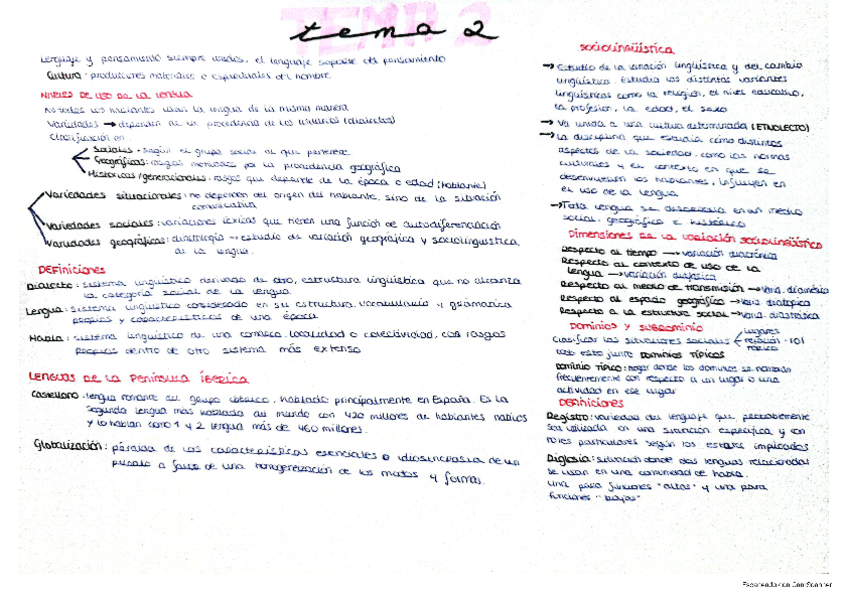 TEMA 2
tema 2
Lenguaje y pensamiento siempre unidos, el lenguaje soporte del pensamiento
Cultura: producciones materiales o espirituales del hombre.
NIVELES DE USO DE LA LENGUA
No todos los hablantes usan la lengua de la misma manera
Variedades → dependen de la procedencia de los usuarios (dialectos)
Clasificación en
Sociales: según el grupo social al que pertenece
Geográficas: rasgos motivados por la procedencia geográfica
Históricas/generacionales: rasgos que depende de la época o edad (hablante)
Variedades situacionales: no dependen del origen del hablante, sino de la situación
comunicativa
Variedades sociales: variaciones léxicas que tienen una función de autodiferenciación
Variedades geográficas: → estudio de variación geográfica y sociolinguistica
de la lengua.
DEFINICIONES
Dialecto: sistema lingüístico derivado de otro, estructura lingüística que no alcanza
la categoría social de la lengua.
Lengua: sistema lingüístico considerado en su estructura. Vocabulario y gramática
propios y característicos de una época
Habla: sistema lingüístico de una comarca, localidad o colectividad, con rasgos
propios dentro de otro sistema más extenso
LENGUAS DE LA PENÍNSULA IBÉRICA
Castellano: lengua romance del grupo ibérico, hablado principalmente en España. Es la
segunda lengua más hablada del mundo con 420 millones de hablantes nativos
y lo hablan como 1 y 2 lengua más de 460 millones.
Globalización: pérdida de las características esenciales o idiosincrasia de un
pueblo a favor de una homogeneización de los modos y formas.
SOCIOLINGÜÍSTICA
→ Estudio de la variación lingüística y del cambio
lingüístico. Estudia las distintas variantes
lingüísticas como la religión, el nivel educativo,
la profesión, la edad, el sexo
→ Va unida a una cultura determinada (ETNOLECTO)
→ La disciplina que estudia cómo distintos
aspectos de la sociedad, como las normas
culturales y el contexto en que se
desenvuelven los hablantes, influyen en
el uso de la lengua
→ Toda lengua se desarrolla en un medio
social, geográfico e histórico
Dimensiones de la variación sociolingüística
Respecto al tiempo → variación diacrónica
Respecto al contexto de uso de la
lengua → variación diafásica
Respecto al medio de transmisión → Varia. diamésica
Respecto al espacio geográfico → Varia. diatópica
Respecto a la estructura social → Varia. diastrática
DOMINIOS Y SUBDOMINIO
Clasificar las situaciones sociales
lugares
relación-rol
tópico
todo esto junto DOMINIOS TÍPICOS
Dominio típico: lugar donde los dominios se nombran
frecuentemente con respecto a un lugar o una
actividad en ese lugar
DEFINICIONES
Registro: variedad del lenguaje que probablemente
sea utilizada en una situación específica y con
roles particulares según los estatus implicados
Diglosia: situación donde dos lenguas relacionadas
se usan en una comunidad de habla.
Una para funciones "altas" y una para
funciones "bajas"
Escaneado con CamScanner